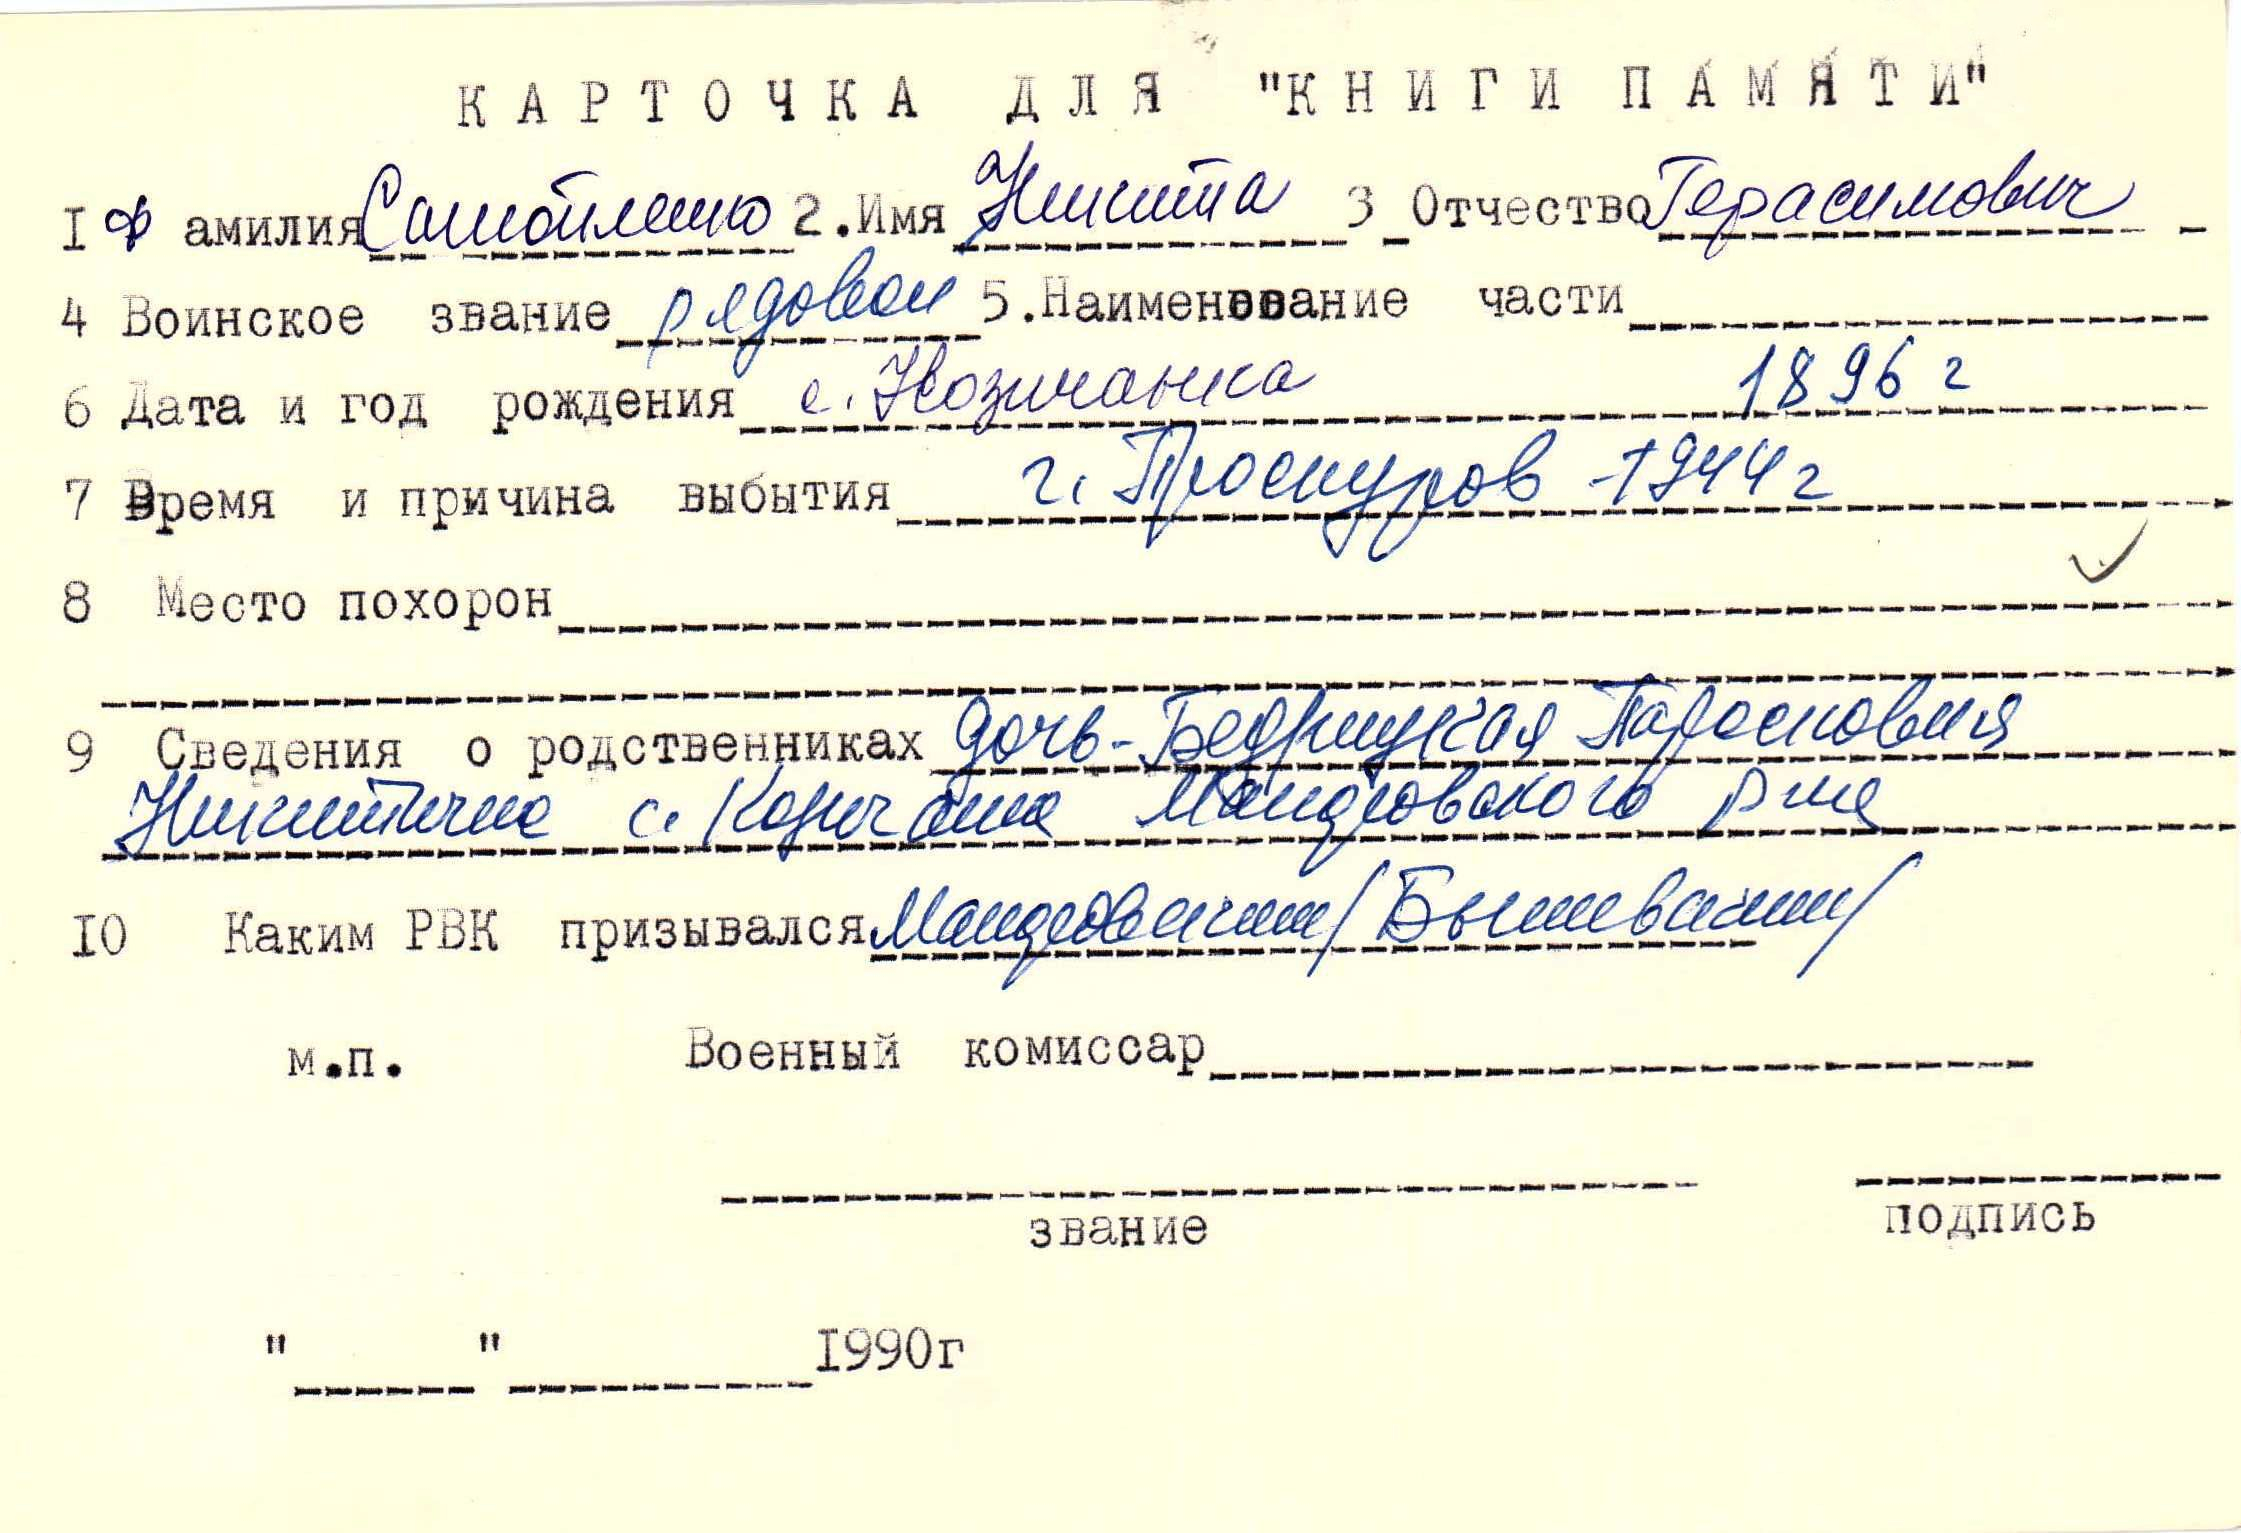 КАРТОЧКА ДЛЯ "КНИГИ ПАМЯТИ"
I Фамилия Самойленко 2.Имя Никита 3 Отчество Герасимович
4 Воинское звание рядовой 5.Наименование части
6 Дата и год рождения с. 1896 г
7 Время и причина выбытия г. Проскуров - 1944 г
8 Место похорон
9 Сведения о родственниках дочь - Бедрицкая Парасковия
Никитична с. р-на
I0 Каким РВК призывался
м.п. Военный комиссар
звание подпись
" " I990г